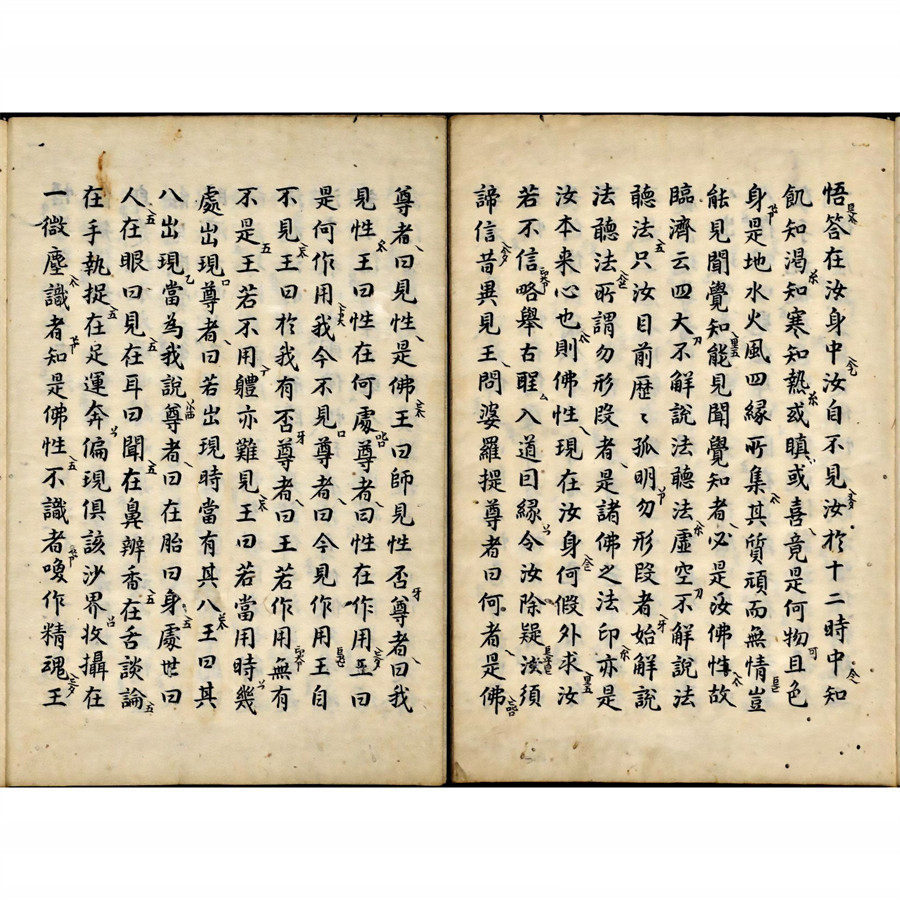 悟答在汝身中汝自不見汝於十二時中知
飢知渴知寒知熱或瞋或喜竟是何物且色
身是地水火風四緣所集其質頑而無情豈
能見聞覺知能見聞覺知者必是汝佛性故
臨濟云四大不解說法聽法虛空不解說法
聽法只汝目前歷〻孤明勿形段者始解說
法聽法所謂勿形段者是諸佛之法印亦是
汝本来心也則佛性現在汝身何假外求汝
若不信略舉古聖入道因緣令汝除疑汝須
諦信昔異見王問婆羅提尊者曰何者是佛
尊者曰見性是佛王曰師見性否尊者曰我
見性王曰性在何處尊者曰性在作用王曰
是何作用我今不見尊者曰今見作用王自
不見王曰於我有否尊者曰王若作用無有
不是王若不用軆亦難見王曰若當用時幾
處出現尊者曰若出現時當有其八王曰其
八出現當為我說尊者曰在胎曰身處世曰
人在眼曰見在耳曰聞在鼻辨香在舌談論
在手執捉在足運奔偏現俱該沙界收攝在
一微塵識者知是佛性不識者喚作精魂王